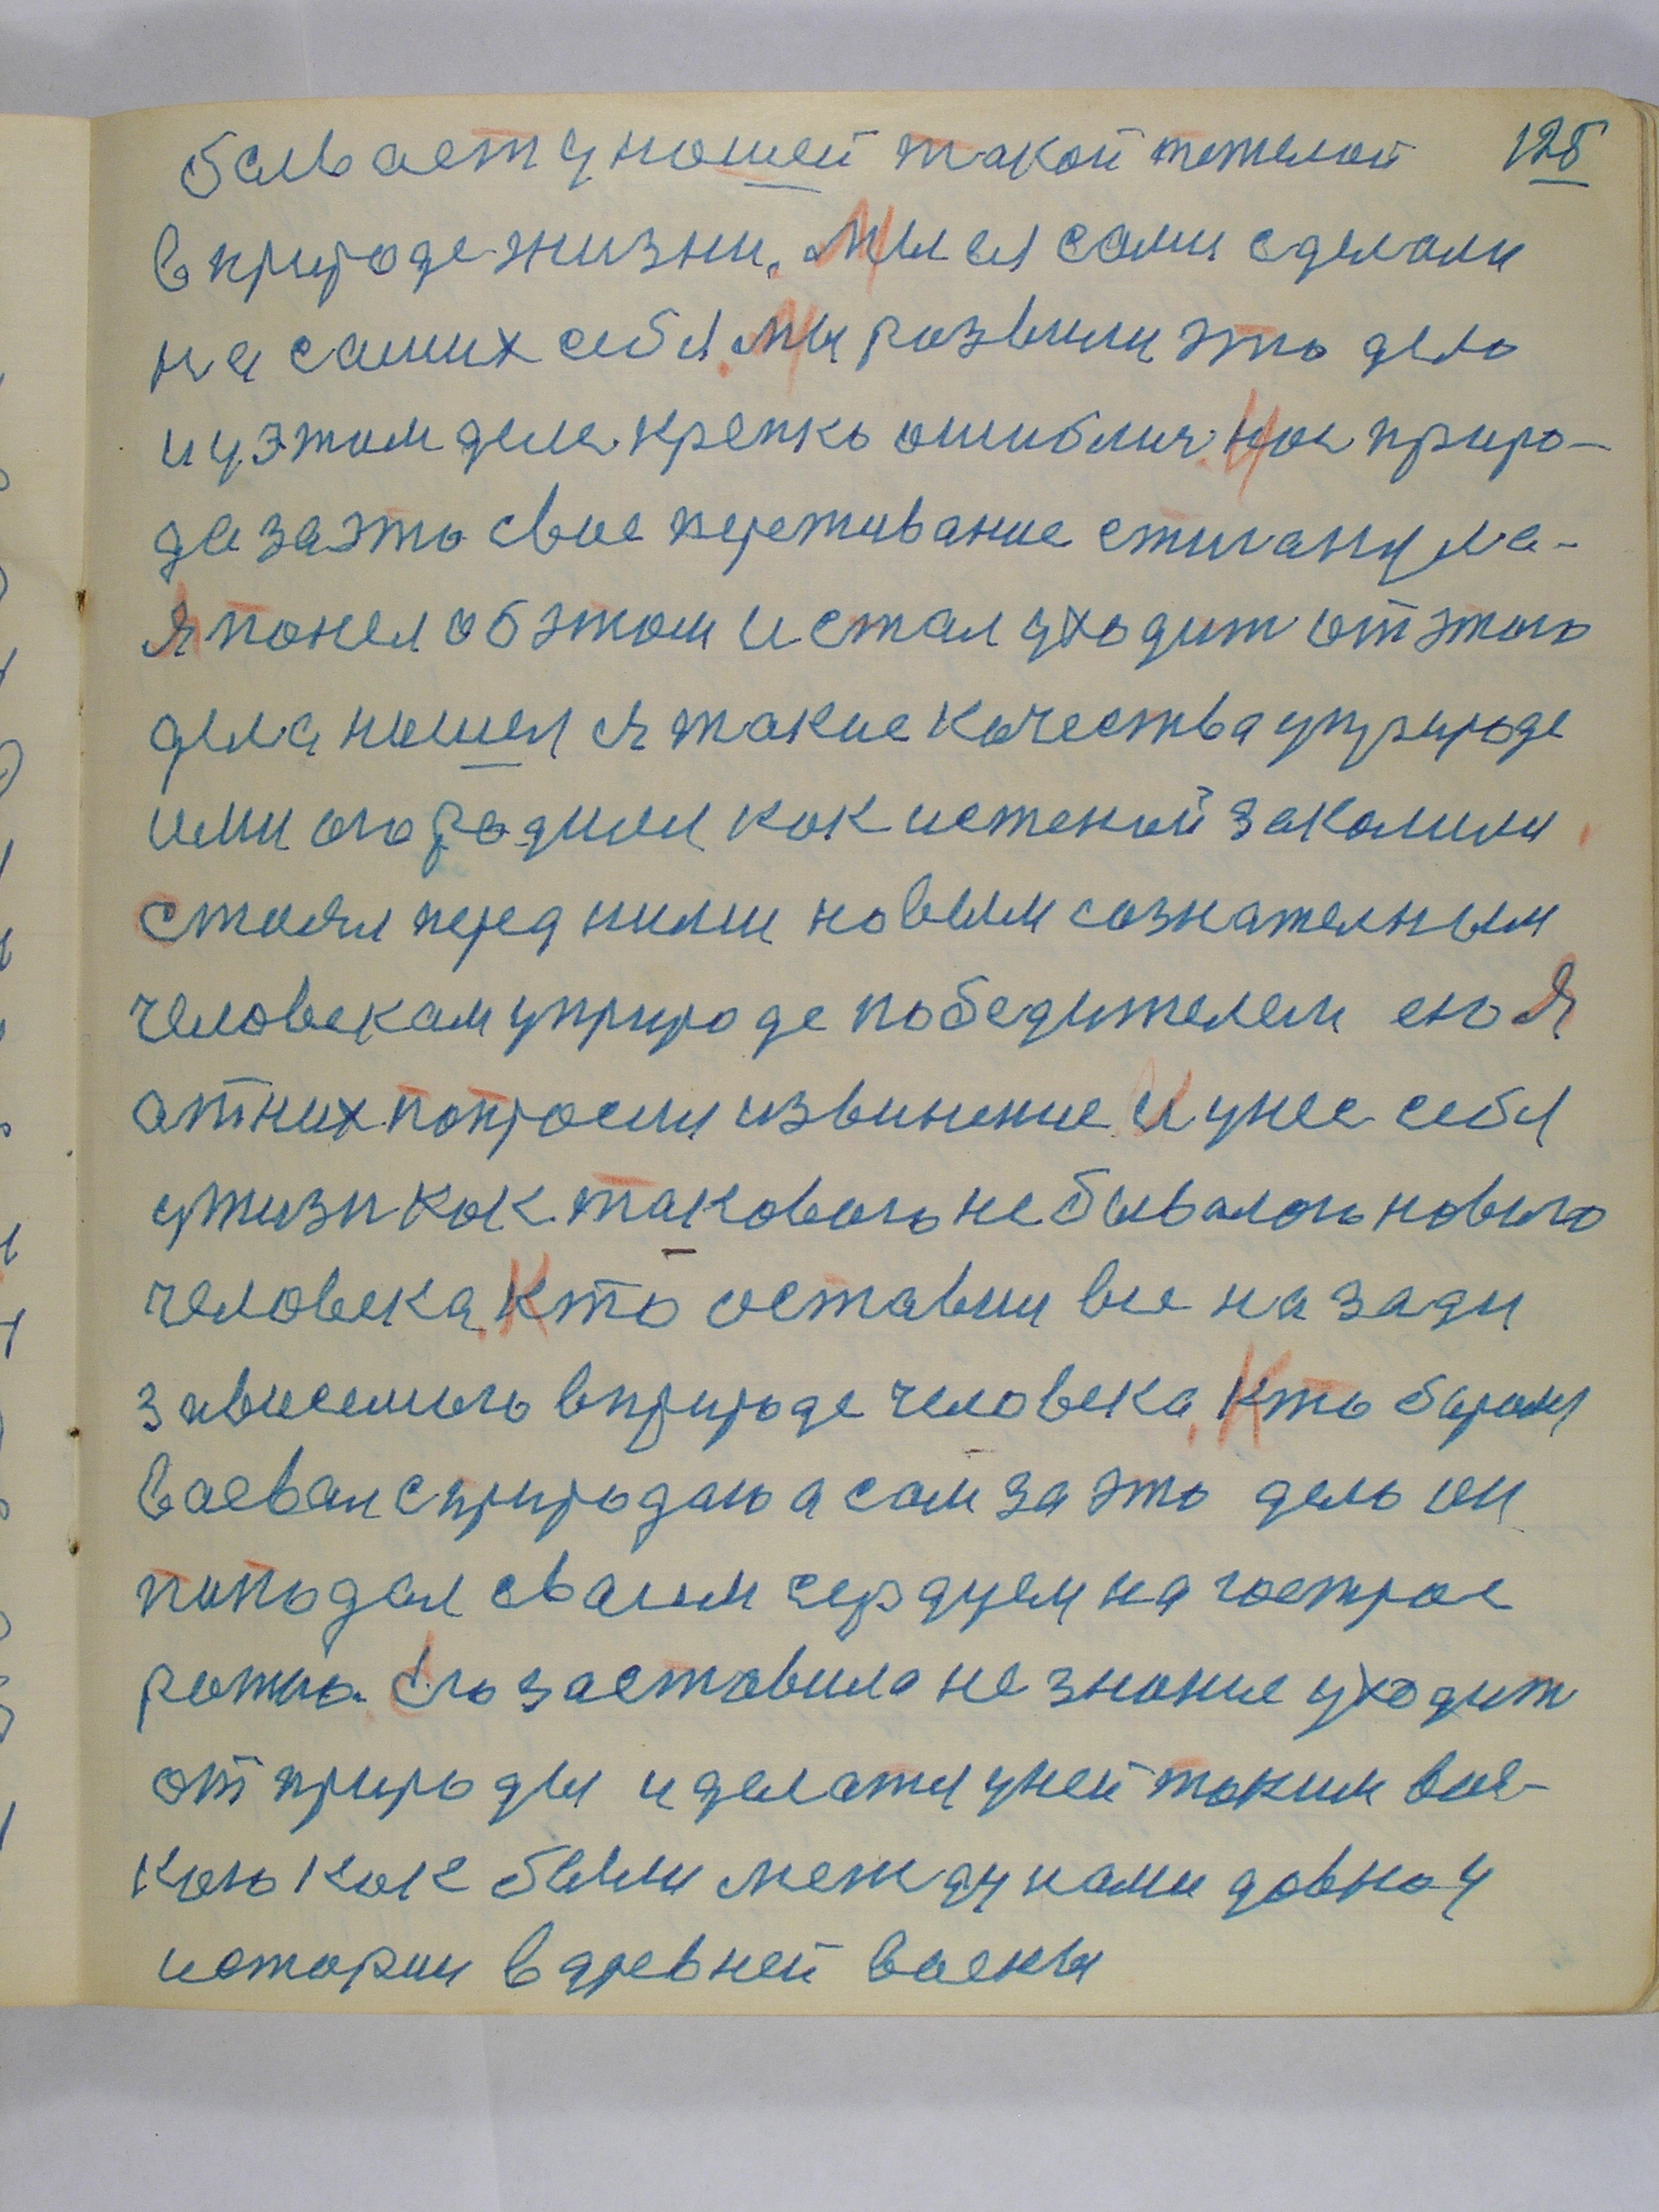 бывает у нашей такой тежелой 125
в природе жизни. Мы ея сами сделали
на самих себя. Мы развили это дело
и у этом деле крепко ошиблис. Нас приро-
да за это свое переживание стиганула-
Я понел об этом и стал уходит от этого
дела нашел я такие качества у природе
ими огородили как истеной закалили
стоял перед ними новым сознателным
человекам у природе победителем ею Я
от них попросил извинение И унес себя
у жизн как таковога не бывалого нового
человека. Кто оставил все на зади
зависемого в природе человека. Кто
воевал с природаю а сам за это дело он
пападал сваим сердцем на гострое
Его заставила не знание уходит
от природы и делати у ней таким
как были между нами давно у
истории в древней